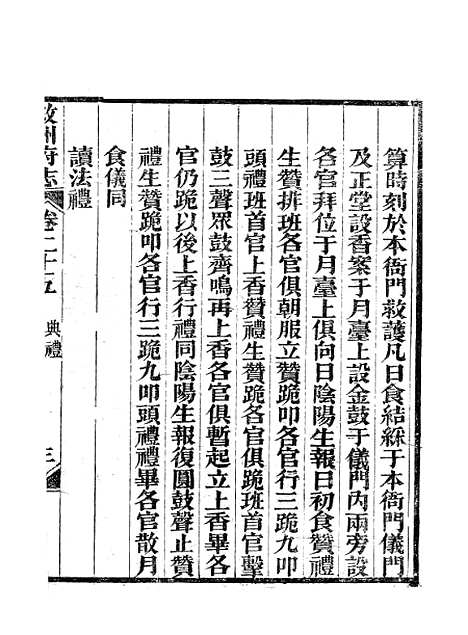 算時刻於本衙門救護凡日食結綵于本衙門儀門
及正堂設香案于月臺上設金鼓于儀門內兩旁設
各官拜位于月臺上俱向日陰陽生報日初食贊禮
生贊排班各官俱朝服立贊跪叩各官行三跪九叩
頭禮班首官上香贊禮生贊跪各官俱跪班首官擊
鼓三聲眾鼓齊鳴再上香各官俱暫起立上香畢各
官仍跪以後上香行禮同陰陽生報復圓鼓聲止贊
禮生贊跪叩各官行三跪九叩頭禮禮畢各官散月
食儀同
讀法禮
敘州府志 卷二十五 典禮 三